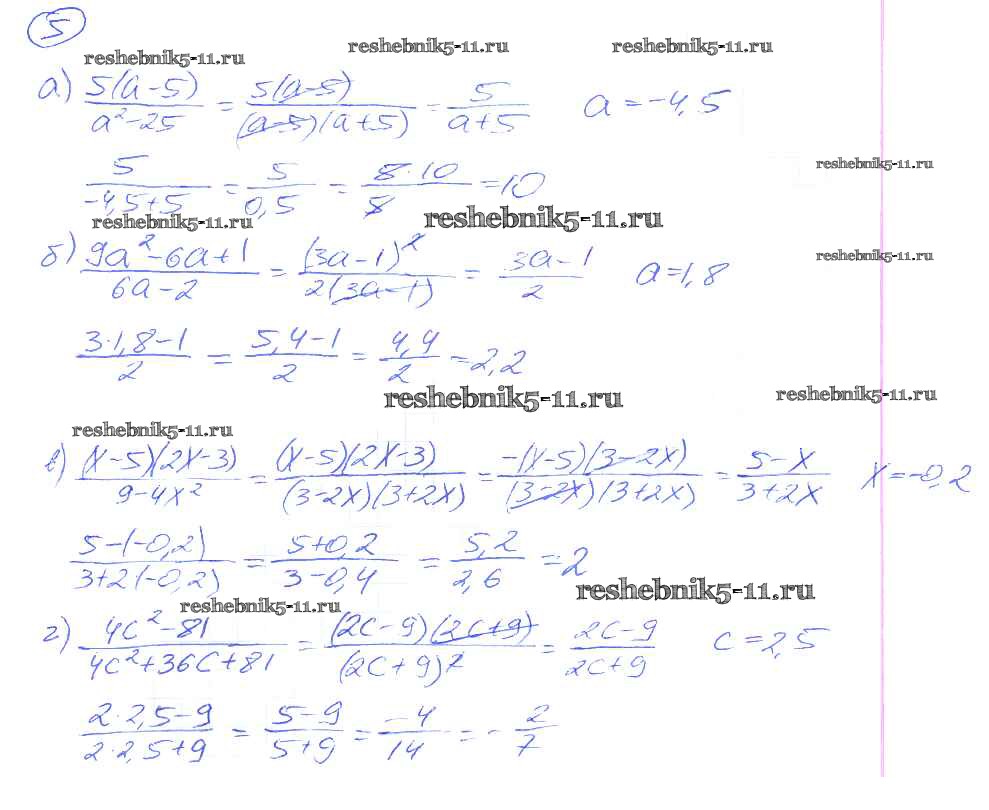 5
reshebnik5-11.ru reshebnik5-11.ru reshebnik5-11.ru
а) 5(a-5)/(a²-25) = 5(a-5)/((a-5)(a+5)) = 5/(a+5) a = -4,5
reshebnik5-11.ru
5/(-4,5+5) = 5/0,5 = 5·10/5 = 10
reshebnik5-11.ru reshebnik5-11.ru
б) (9a²-6a+1)/(6a-2) = (3a-1)²/(2(3a-1)) = (3a-1)/2 a = 1,8
reshebnik5-11.ru
(3·1,8-1)/2 = (5,4-1)/2 = 4,4/2 = 2,2
reshebnik5-11.ru reshebnik5-11.ru
reshebnik5-11.ru
в) (x-5)(2x-3)/(9-4x²) = (x-5)(2x-3)/((3-2x)(3+2x)) = -(x-5)(3-2x)/((3-2x)(3+2x)) = (5-x)/(3+2x) x = -0,2
(5-(-0,2))/(3+2(-0,2)) = (5+0,2)/(3-0,4) = 5,2/2,6 = 2
reshebnik5-11.ru reshebnik5-11.ru
г) (4c²-81)/(4c²+36c+81) = (2c-9)(2c+9)/(2c+9)² = (2c-9)/(2c+9) c = 2,5
(2·2,5-9)/(2·2,5+9) = (5-9)/(5+9) = -4/14 = -2/7